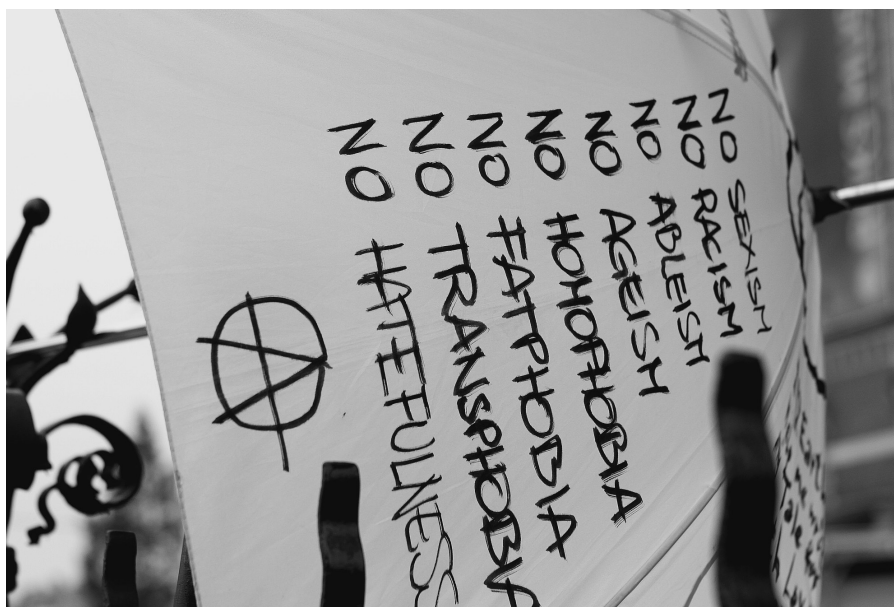 NO SEXISM
NO RACISM
NO ABLEISM
NO AGEISM
NO HOMOPHOBIA
NO FATPHOBIA
NO TRANSPHOBIA
NO HATEFULNESS